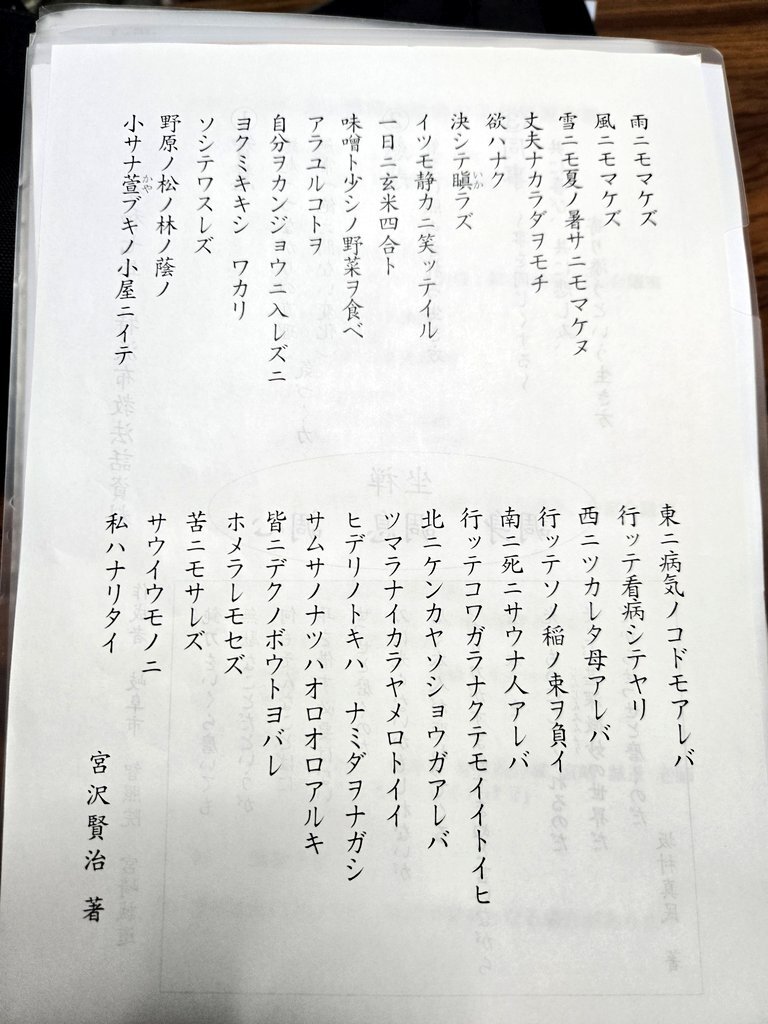 雨ニモマケズ
風ニモマケズ
雪ニモ夏ノ暑サニモマケヌ
丈夫ナカラダヲモチ
欲ハナク
決シテ瞋ラズ
いか
イツモ静カニ笑ッテイル
一日ニ玄米四合ト
味噌ト少シノ野菜ヲ食べ
アラユルコトヲ
自分ヲカンジョウニ入レズニ
ヨクミキキシ ワカリ
ソシテワスレズ
野原ノ松ノ林ノ蔭ノ
小サナ萱ブキノ小屋ニイテ
かや
東ニ病気ノコドモアレバ
行ッテ看病シテヤリ
西ニツカレタ母アレバ
行ッテソノ稲ノ束ヲ負イ
南ニ死ニサウナ人アレバ
行ッテコワガラナクテモイイトイヒ
北ニケンカヤソショウガアレバ
ツマラナイカラヤメロトイイ
ヒデリノトキハ ナミダヲナガシ
サムサノナツハオロオロアルキ
皆ニデクノボウトヨバレ
ホメラレモセズ
苦ニモサレズ
サウイウモノニ
私ハナリタイ
宮沢賢治 著
坐禅
調身 調息 調心
坂村真民 著